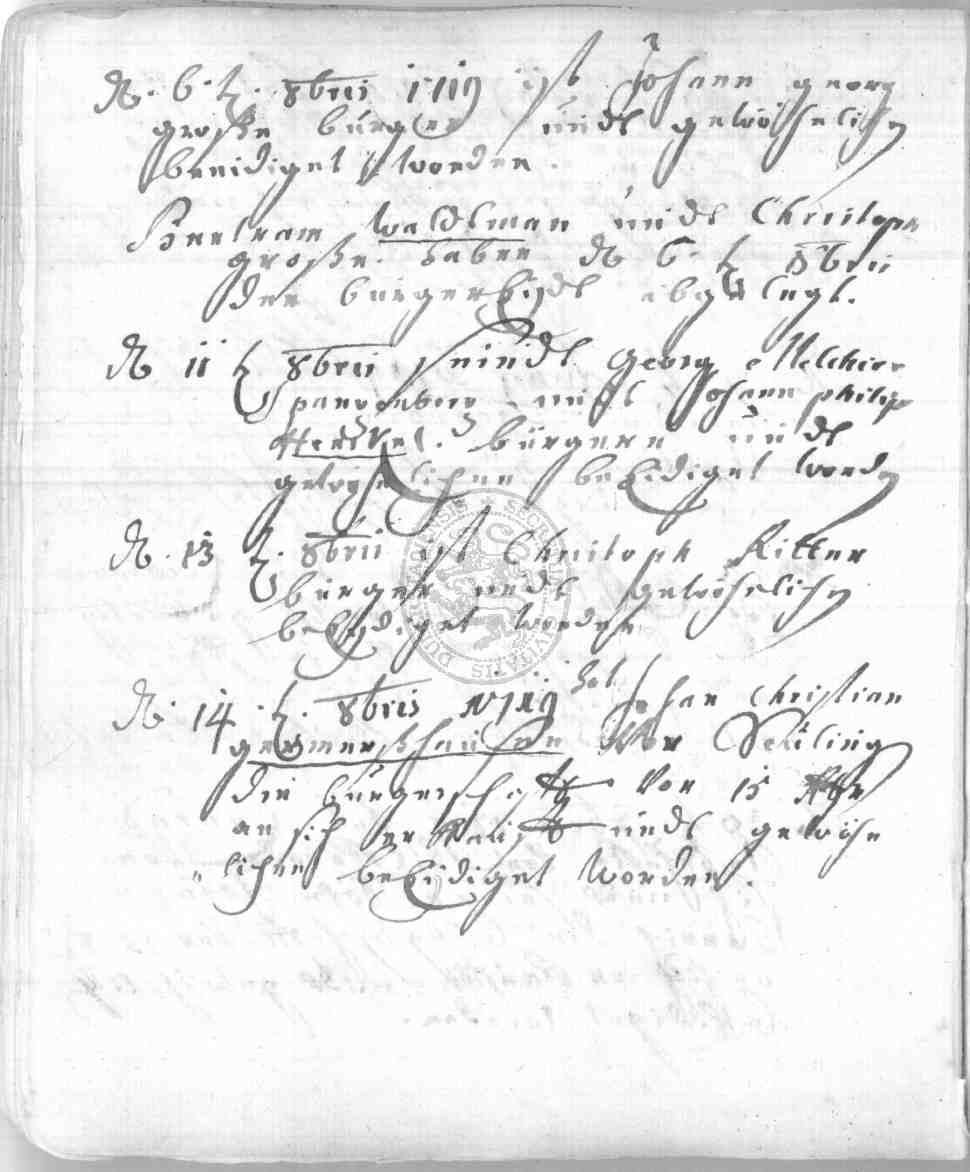 D. 6. t. 8brii 1719 ist Johann georg
große bürger undt gewöhnlich
beeidiget worden.
Bertram Waldtman undt Christoph
große haben D 6. t 8brii
den bürger Eydt abgelegt.
D. 11 t 8brii seindt Georg Melchior
undt Johann philip
bürgern undt
gewöhnlichen beEidiget worden
D. 13 t. 8brii ist Christoph Ritter
bürger undt gewöhnlich
beEydiget worden
D. 14. t. 8bris 1719 hat Johan Christian
germerßhausen
die bürgerschafft vor 15 rthr
an sich erkaufft undt gewöhn
lichen beEydiget worden.
SECRET CIVITATIS DUDERSTADIENSIS